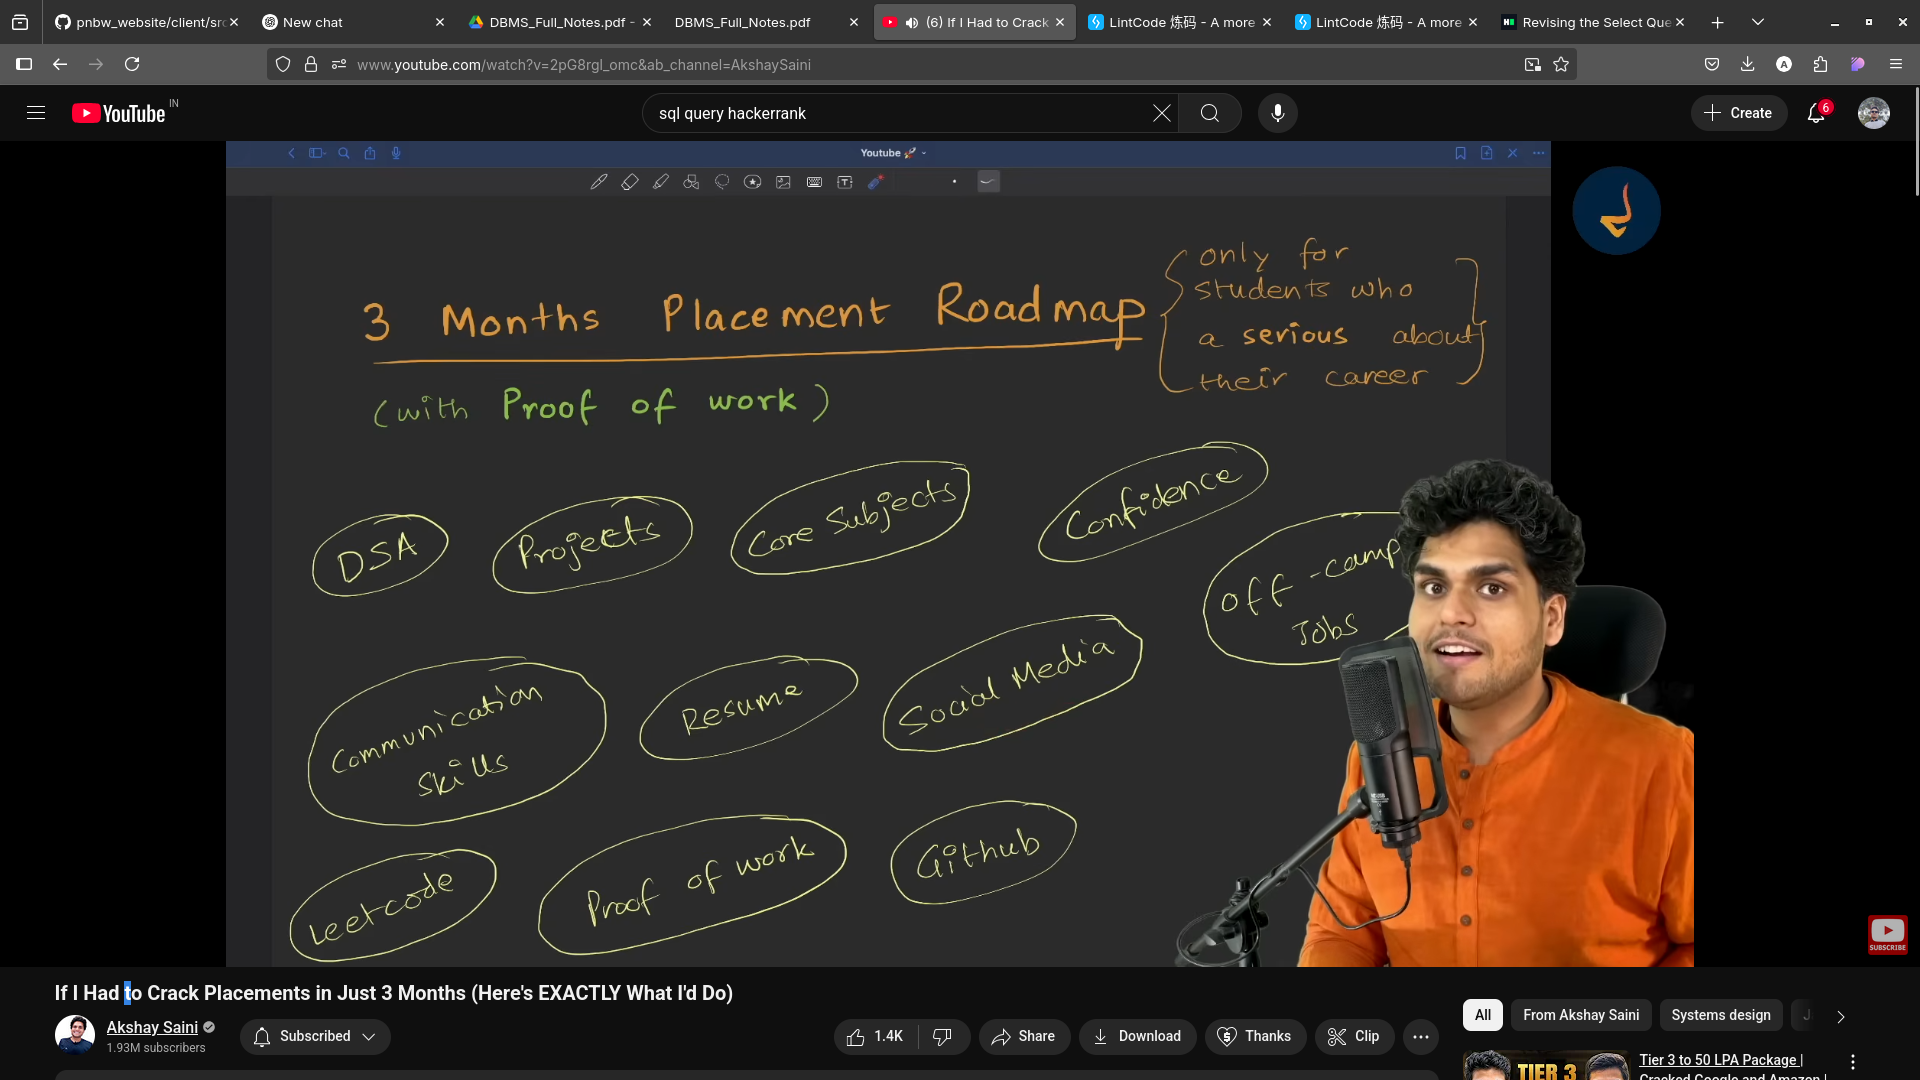 pnbw_website/client/src
New chat
DBMS_Full_Notes.pdf -
DBMS_Full_Notes.pdf
(6) If I Had to Crack
LintCode 炼码 - A more
LintCode 炼码 - A more
Revising the Select Que
www.youtube.com/watch?v=2pG8rgl_omc&ab_channel=AkshaySaini
A
YouTube IN
sql query hackerrank
Create
6
Youtube 🚀
3 Months Placement Roadmap
only for
students who
a serious about
their career
(with Proof of work)
DSA
Projects
Core Subjects
Confidence
Off-camp
Jobs
Communication
Skills
Resume
Social Media
Leetcode
Proof of work
Github
SUBSCRIBE
If I Had to Crack Placements in Just 3 Months (Here's EXACTLY What I'd Do)
Akshay Saini
1.93M subscribers
Subscribed
1.4K
Share
Download
Thanks
Clip
All
From Akshay Saini
Systems design
TIER 3
Tier 3 to 50 LPA Package |
Cracked Google and Amazon |